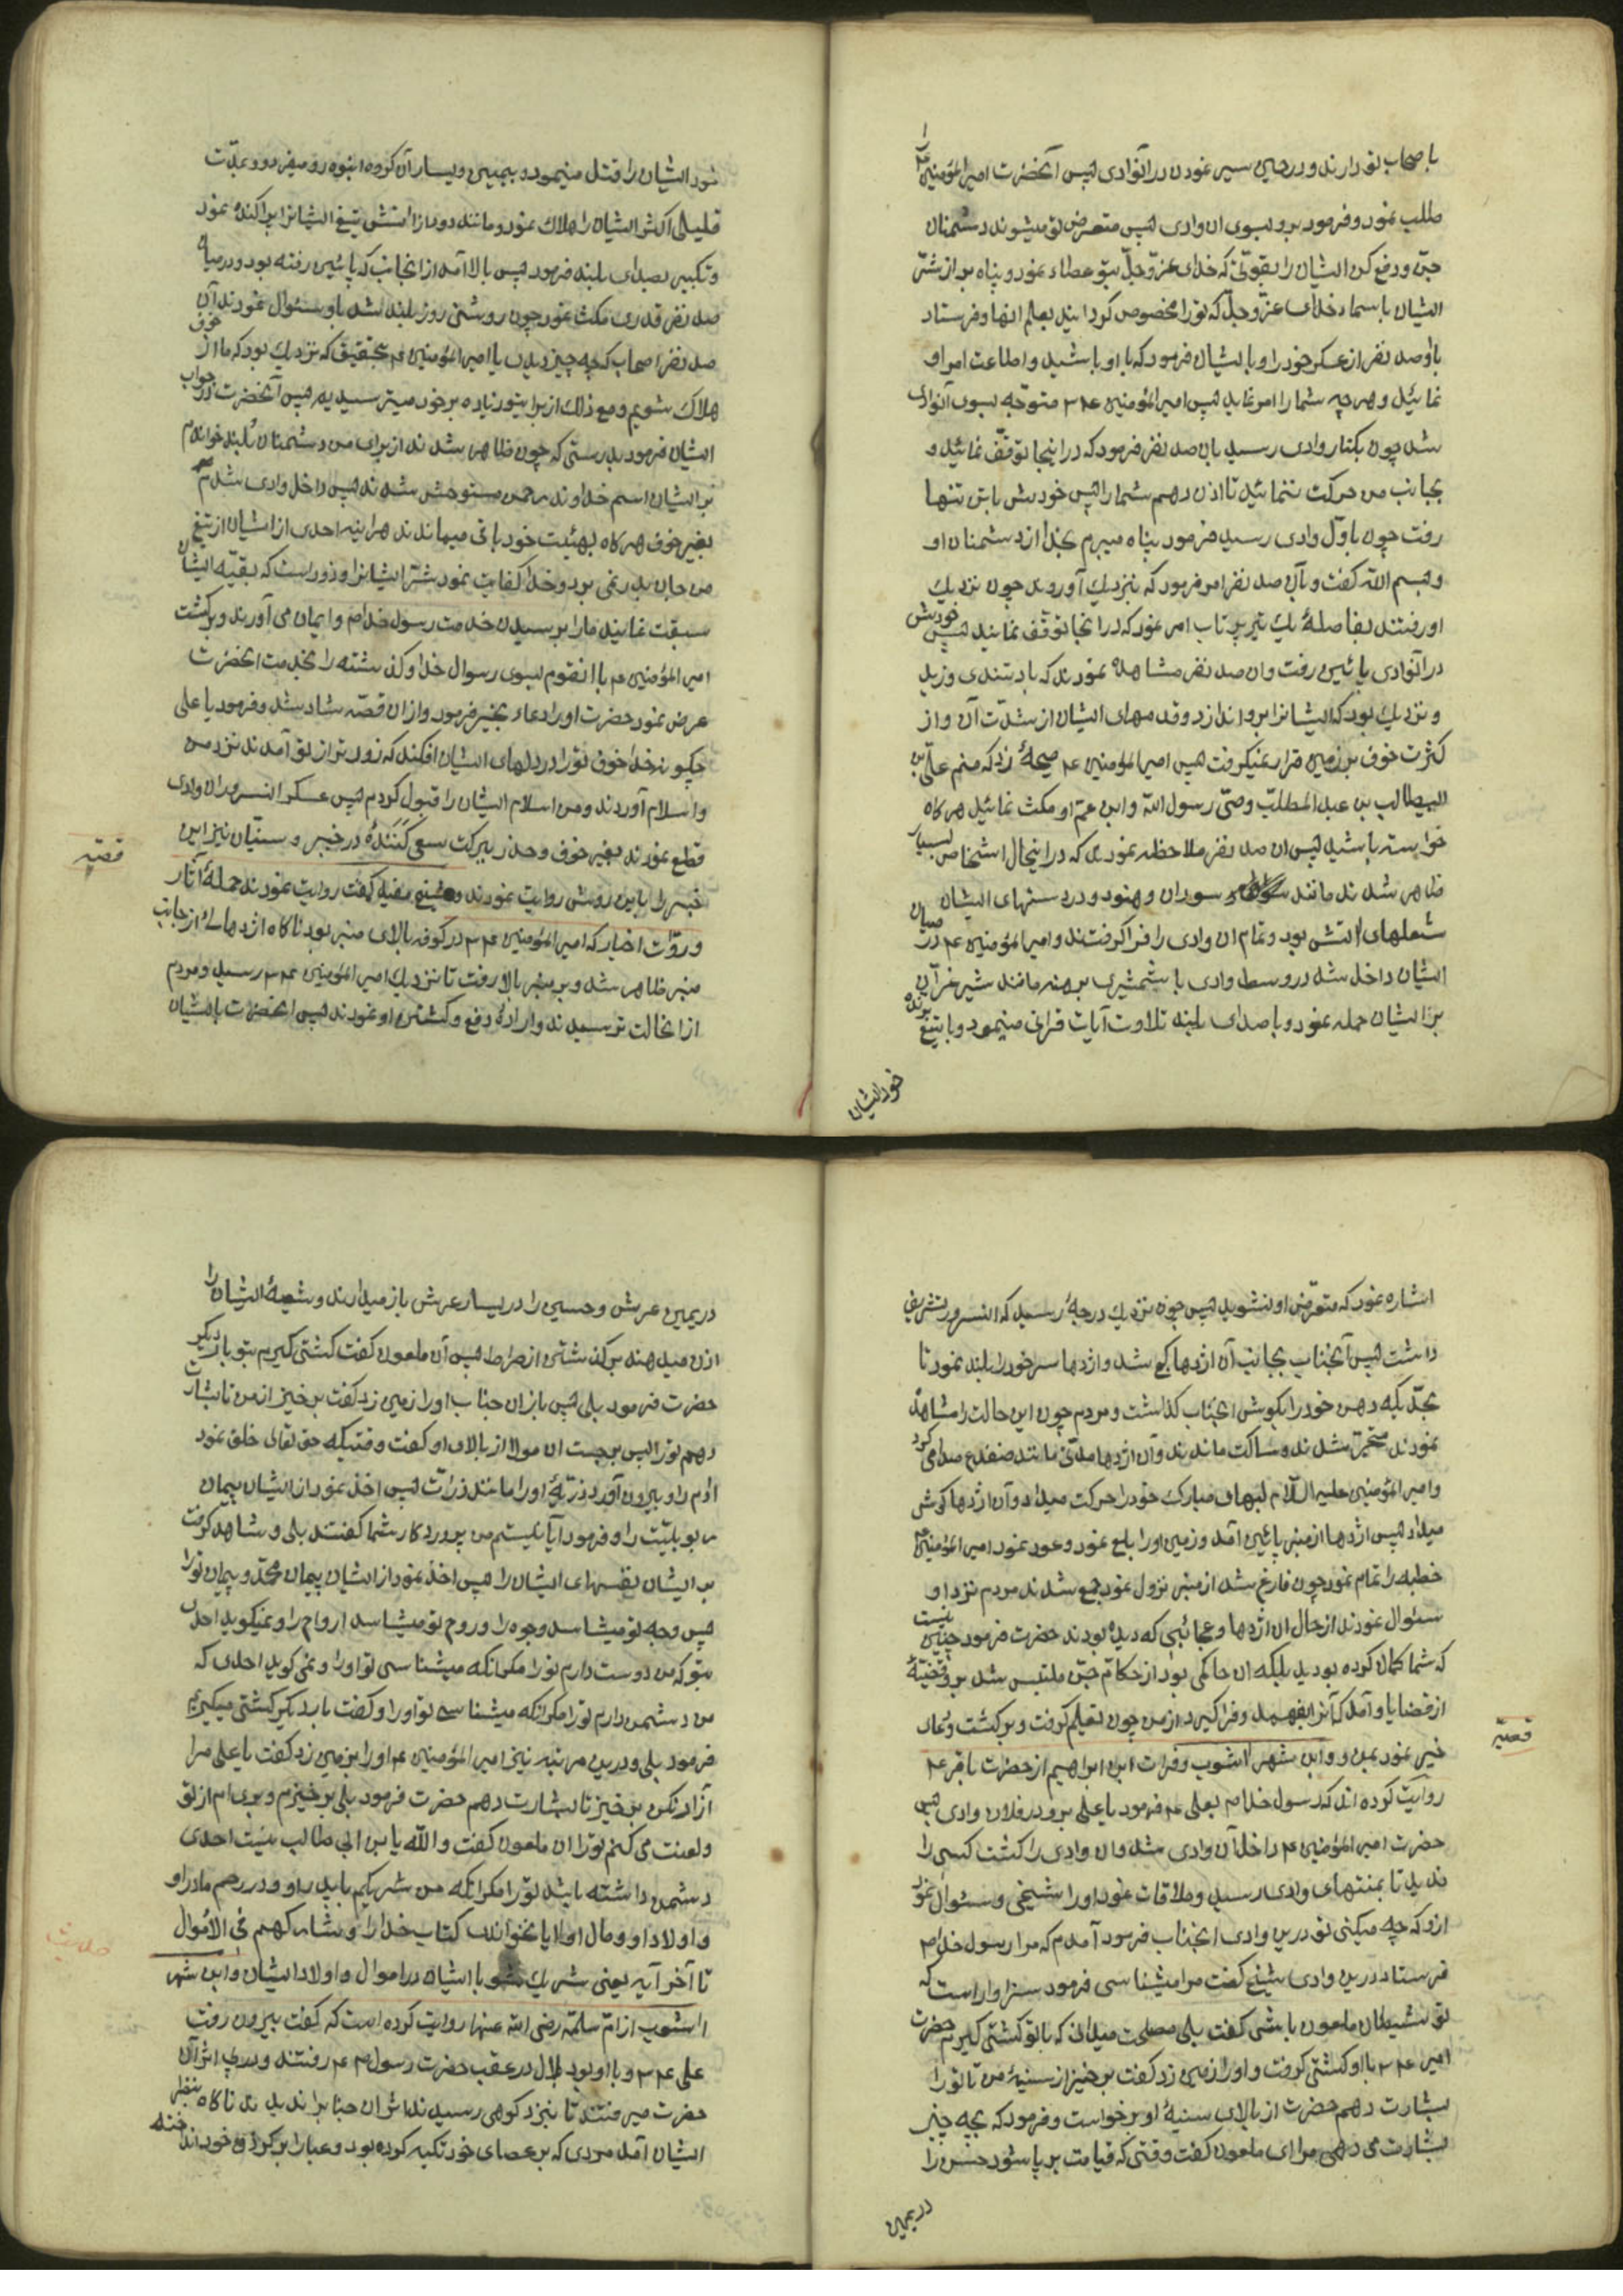 باصحاب تو دارند و در حین سیر نمودن در آنوادی پس آنحضرت امیر المؤمنین را
طلب نمود و فرمود برو بسوی ان وادی پس متعرض تو میشوند دشمنان
جن و دفع کن ایشان را بقوتی که خدای عز و جل بتو عطاء نمود و پناه بر از شر
ایشان باسماء خدای عز و جل که تو را مخصوص گردانید بعلم انها و فرستاد
با او صد نفر از عسکر خود را و با ایشان فرمود که با او باشید و اطاعت امر او
نمائید و هر چه شما را امر نماید پس امیر المؤمنین ع م متوجه بسوی آنوادی
شد چون بکنار وادی رسید بان صد نفر فرمود که در اینجا توقف نمائید و
بجانب من حرکت ننمائید تا اذن دهم شما را پس خودش تنها
رفت چون باول وادی رسید فرمود پناه میبرم بخدا از دشمنان او
و بسم الله گفت و بآن صد نفر امر فرمود که نزدیک آوروند چون نزدیک
او رفتند بفاصلهٔ یک تیر پرتاب امر نمود که در انجا توقف نمایند پس خودش
در آنوادی پائین رفت و ان صد نفر مشاهده نمودند که باد تندی وزید
و نزدیک بود که ایشانرا برو اندازد و قدمهای ایشان از شدت آن و از
کثرت خوف بر زمین قرار نمیگرفت پس امیر المؤمنین ع م صیحهٔ زد که منم علی بن
ابیطالب بن عبد المطلب وصی رسول الله و ابن عم او مکث نمائید هر گاه
خواسته باشید پس ان صد نفر ملاحظه نمودند که در اینحال اشخاص بسیار
ظاهر شدند مانند سودان و هنود و در دستهای ایشان
شعلهای اتش بود و تمام ان وادی را فرا گرفتند و امیر المؤمنین ع م در میان
ایشان داخل شد در وسط وادی با شمشیری برهنه مانند شیر غرآن
بر ایشان حمله نمود و با صدای بلند تلاوت آیات قرانی مینمود و با تیغ برنده
خود ایشان
خود ایشان را قتل مینمود و بیمین و یسار آن گروه انبوه رو میفرمود و بمدت
قلیلی اکثر ایشان را هلاک نمود و مانند دود از اتش تیغ ایشانرا پراکنده نمود
و تکبیر بصدای بلند فرمود پس بالا آمد از انجانب که پائین رفته بود و در میان
صد نفر قدری مکث نمود چون روشنی روز بلند شد باو سئوال نمودند آن
صد نفر اصحاب که چه چیز دیدی یا امیر المؤمنین ع م بتحقیق که نزدیک بود که ما از خوف
هلاک شویم و مع ذلک از برای تو زیاده بر خود میترسیدیم پس آنحضرت در جواب
ایشان فرمود بدرستی که چون ظاهر شدند از برای من دشمنان بلند خواندم
بر ایشان اسم خداوند رحمن مستوحش شدند پس داخل وادی شدم
بغیر خوف هر گاه بهئیت خود باقی میماندند هراینه احدی از ایشان از تیغ
من جان بدر نمی برد و خدا کفایت نمود شر ایشانرا و زود است که بقیه ایشان
سبقت نمایند ما را برسیدن خدمت رسول خدا م و ایمان می آورند و برگشت
امیر المؤمنین ع م با انقوم بسوی رسوال خدا و گذشته را بخدمت انحضرت
عرض نمود حضرت او را دعاء بخیر فرمود و از ان قصه شاد شد و فرمود یا علی
چگونه خدا خوف تو را در دلهای ایشان افکند که زودتر از تو آمدند نزد من
و اسلام آوردند و من اسلام ایشان را قبول کردم پس عسکر انسرور ان وادی
قطع نمودند بغیر خوف و حذر ببرکت سعی کنندهٔ در خیبر و سنیان نیز این
قصه
خبر را باین روش روایت نمودند و شیخ مفید گفت روایت نمودند حملهٔ آثار
و روّات اخبار که امیر المؤمنین ع م در کوفه بالای منبر بود ناگاه اژدهائی از جانب
منبر ظاهر شد و بر منبر بالا رفت تا نزدیک امیر المؤمنین ع م رسید و مردم
از انحالت ترسیدند و ارادهٔ دفع و کشتن او نمودند پس انحضرت بایشان
اشاره نمود که متعرض او نشوید پس چون نزدیک درجهٔ رسید که انسرور تشریف
داشت پس آنجناب بجانب آن اژدها کج شد و اژدها سر خود را بلند نمود تا
بحدیکه دهن خود را بگوش انجناب گذاشت و مردم چون این حالت را مشاهده
نمودند متحیر شدند و ساکت ماندند و آن اژدها مدتی مانند ضفدع صدا می کرد
و امیر المؤمنین علیه السلام لبهای مبارک خود را حرکت میداد و آن اژدها گوش
میداد پس اژدها از منبر پائین آمد و زمین او را بلع نمود و عود نمود امیر المؤمنین
خطبه را تمام نمود چون فارغ شد از منبر نزول نمود جمع شدند مردم نزد او
سئوال نمودند از حال ان اژدها و عجائبی که دیده بودند حضرت فرمود چنین نیست
که شما گمان کرده بودید بلکه ان حاکمی بود از حکام جن ملتبس شد بر او قضیهٔ
از قضایا و آمد که آنرا بفهمد و فرا گیرد از من چون تعلیم گرفت و برگشت و دعای
قصه
خیر نمود بمن و و ابن شهر اشوب و فرات ابن ابراهیم از حضرت باقر ع م
روایت کرده اند که رسول خدا م بعلی ع م فرمود یا علی برو در فلان وادی پس
حضرت امیر المؤمنین ع م داخل آن وادی شد و ان وادی را گشت کسی را
ندید تا بمنتهای وادی رسید و ملاقات نمود او را شیخی و سئوال نمود
از و که چه میکنی تو درین وادی انجناب فرمود آمدم که مرا رسول خدا م
فرستاد درین وادی شیخ گفت مرا میشناسی فرمود سزاوار است که
تو شیطان ملعون باشی گفت بلی مصلحت میدانی که با تو کشتی گیرم حضرت
امیر ع م با او کشتی گرفت و او را زمین زد گفت برخیز از سینهٔ من تا تو را
بشارت دهم حضرت از بالای سینهٔ او برخواست و فرمود که بچه چیز
بشارت می دهی مرا ای ملعون گفت وقتی که قیامت بر پا شود حسن را
در یمین
در یمین عرش و حسین را در یسار عرش باز میدارند و شیعهٔ ایشان را
اذن میدهند بر گذشتن از صراط پس آن ملعون گفت کشتی گیرم بتو بار دیگر
حضرت فرمود بلی پس باز ان جناب او را زمین زد گفت بر خیز از من تا بشارت
دهم تو را پس برجست ان مولا از بالای او گفت وقتیکه حق تعالی خلق نمود
ادم را و بیرون آورد ذریهٔ او را مانند ذرات پس اخذ نمود از ایشان پیمان
ربوبیت را و فرمود آیا نیستم من پروردگار شما گفتند بلی و شاهد گرفت
بر ایشان نفسهای ایشان را پس اخذ نمود از ایشان پیمان محمد و پیمان تو را
پس وجه تو میشناسد وجوه را و روح تو میشناسد ارواح را و نمیگوید احدی
بتو که من دوست دارم تو را مگر انکه میشناسی تو او را و نمی گوید احدی که
من دشمن دارم تو را مگر انکه میشناسی تو او را و گفت بار دیگر کشتی میگیرم
فرمود بلی و درین مرتبه نیز امیر المؤمنین ع م او را بزمین زد گفت یا علی مرا
آزار نکن بر خیز تا بشارت دهم حضرت فرمود بلی بر خیزم و بری ام از تو
و لعنت می کنم تو را ان ملعون گفت و الله یا بن ابی طالب نیست احدی
دشمن داشته باشد تو را مگر انکه من شریکم با پدر او و در رحم مادر او
و اولاد او و مال او ایا نخوانده کتاب خدا را و شارکهم فی الاموال
حدیث
تا آخر آیه یعنی شریک شو با ایشان در اموال و اولاد ایشان و ابن شهر
اشوب از ام سلمه رضی الله عنها روایت کرده است که گفت بیرون رفت
علی ع م و با او بود بلال در عقب حضرت رسول م ع م رفتند و در پی اثر آن
حضرت میرفتند تا بنزد کوهی رسیدند اثر ان جناب را ندیدند ناگاه بنظر
ایشان آمد مردی که بر عصای خود تکیه کرده بود و عبا را بر گردن خود انداخته